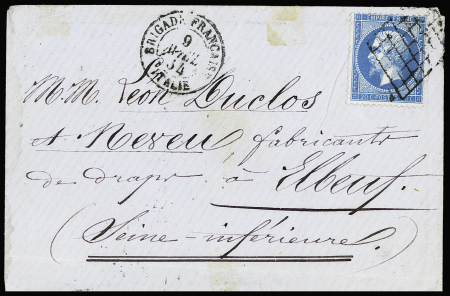 BRIGADE FRANÇAISE
9
AVRIL
54
ITALIE
EMPIRE FRANC
M.M. Leon Duclos
et Neveu fabricants
de draps à Elbeuf.
(Seine-inférieure)